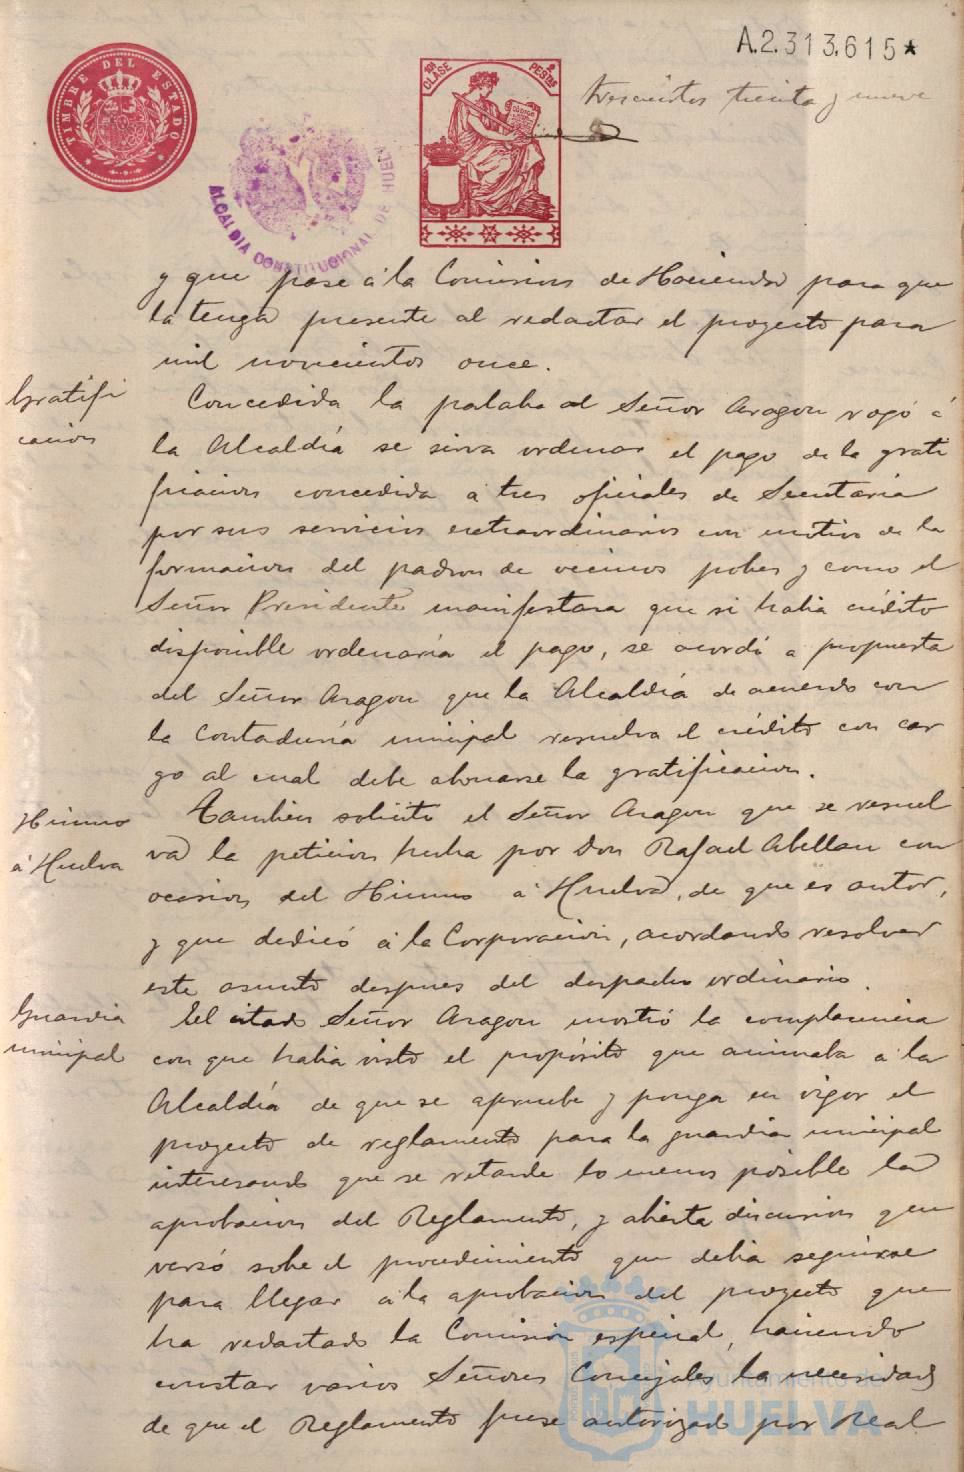 A.2.313.615*
TIMBRE DEL ESTADO
10ª CLASE 2 PESTAS
trescientos treinta y nueve
ALCALDIA CONSTITUCIONAL DE HUELVA
y que pase á la Comision de Hacienda para que
la tenga presente al redactar el proyecto para
mil novecientos once.
Gratifi
cacion
Concedida la palabra al Señor Aragon rogó á
la Alcaldía se sirva ordenar el pago de la grati
ficacion concedida a tres oficiales de Secretaria
por sus servicios extraordinarios con motivo de la
formacion del padron de vecinos pobres y como el
Señor Presidente manifestara que si habia crédito
disponible ordenaría el pago, se acordó a propuesta
del Señor Aragon que la Alcaldía de acuerdo con
la Contaduría municipal resuelva el crédito con car
go al cual debe abonarse la gratificacion.
Himno
á Huelva
Tambien solicitó el Señor Aragon que se resuel
va la peticion hecha por Don Rafael Abellan con
ocasion del Himno á Huelva, de que es autor,
y que dedicó á la Corporacion, acordando resolver
este asunto despues del despacho ordinario.
Guardia
municipal
El citado Señor Aragon mostró la complacencia
con que habia visto el propósito que animaba a la
Alcaldía de que se apruebe y ponga en vigor el
proyecto de reglamento para la guardia municipal
interesando que se retarde lo menos posible la
aprobacion del Reglamento, y abierta discusion que
versó sobre el procedimiento que debia seguirse
para llegar á la aprobacion del proyecto que
ha redactado la Comisión especial, haciendo
constar varios Señores Concejales la necesidad
de que el Reglamento fuese autorizado por Real
Ayuntamiento de
HUELVA